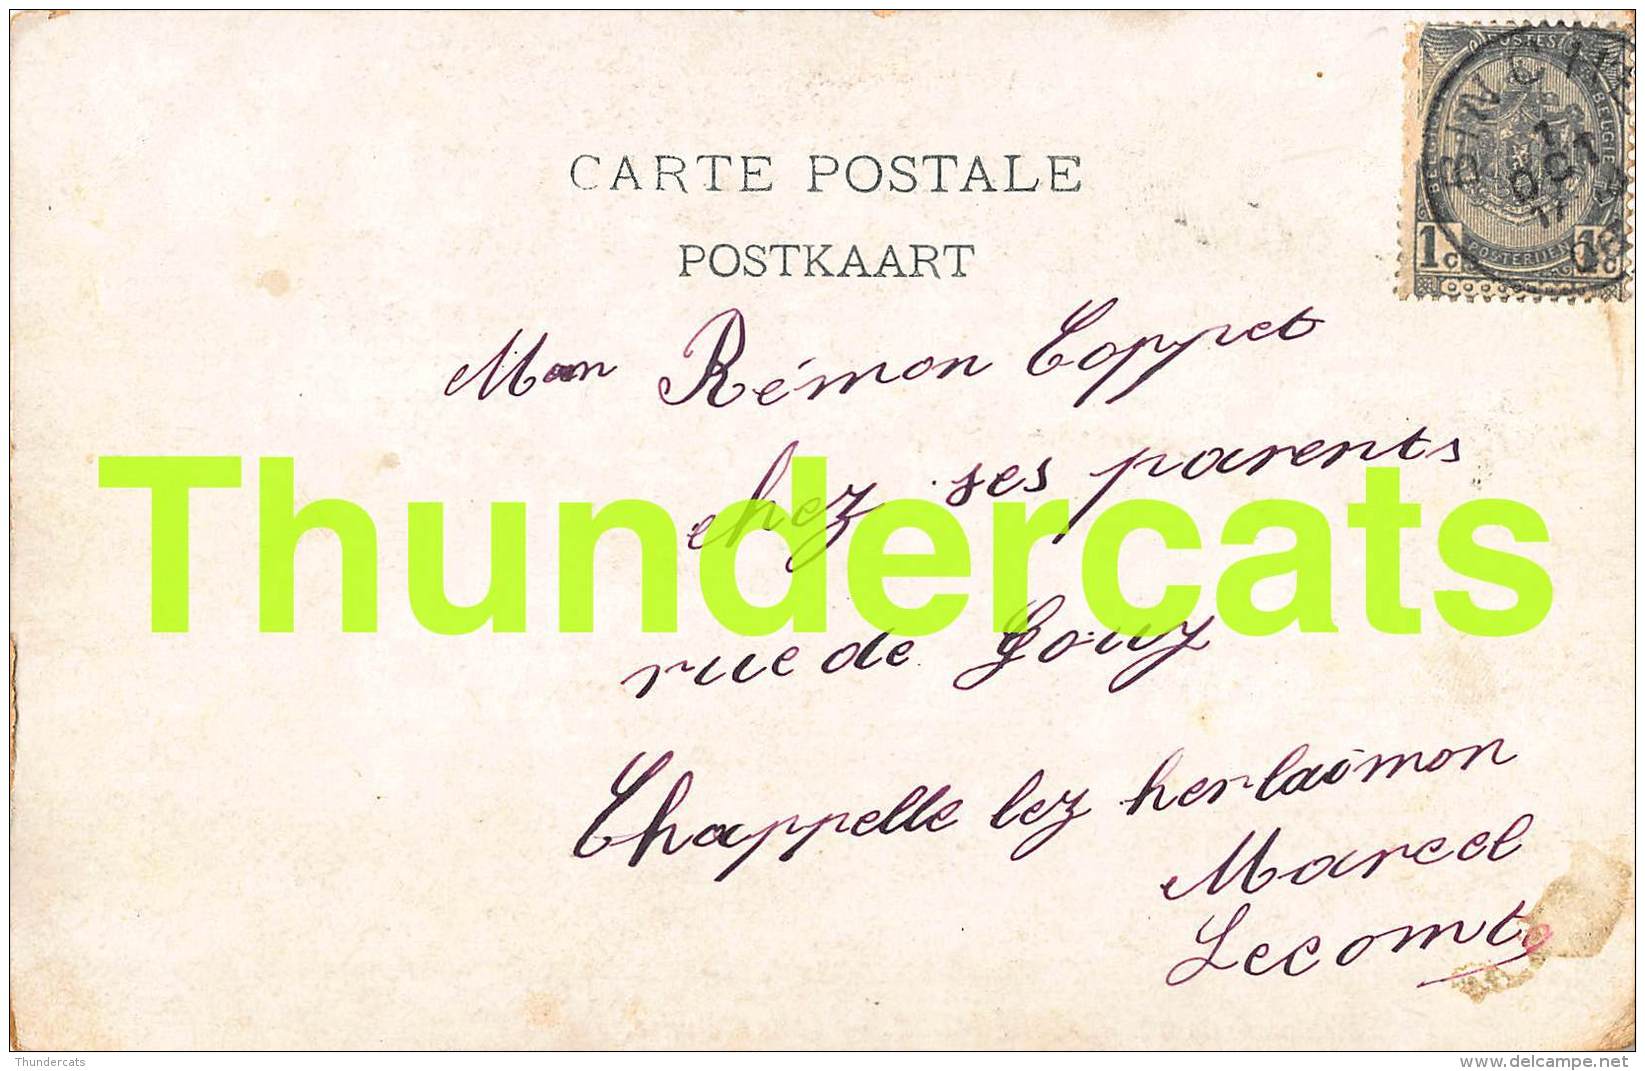 CARTE POSTALE
POSTKAART
POSTES
BELGIQUE
BELGIE
POSTERIJEN
1c 1c
BINCHE
1
OCT
17
Mon Rémon Coppet
chez ses parents
rue de Gouy
Chappelle lez herlaimon
Marcel
Lecomte
Thundercats
Thundercats
delcampe.net